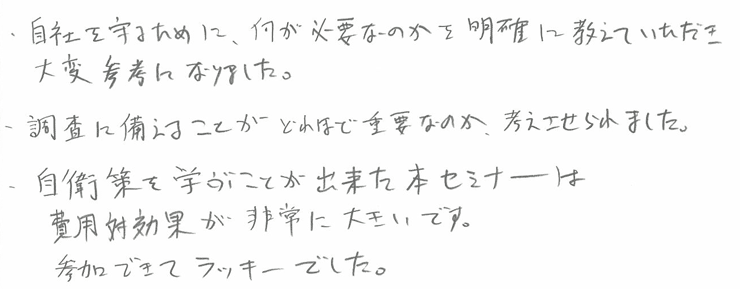 ・自社を守るために、何が必要なのかを明確に教えていただき
大変参考になりました。
・調査に備えることがどれほど重要なのか、考えさせられました。
・自衛策を学ぶことが出来た本セミナーは
費用対効果が非常に大きいです。
参加できてラッキーでした。